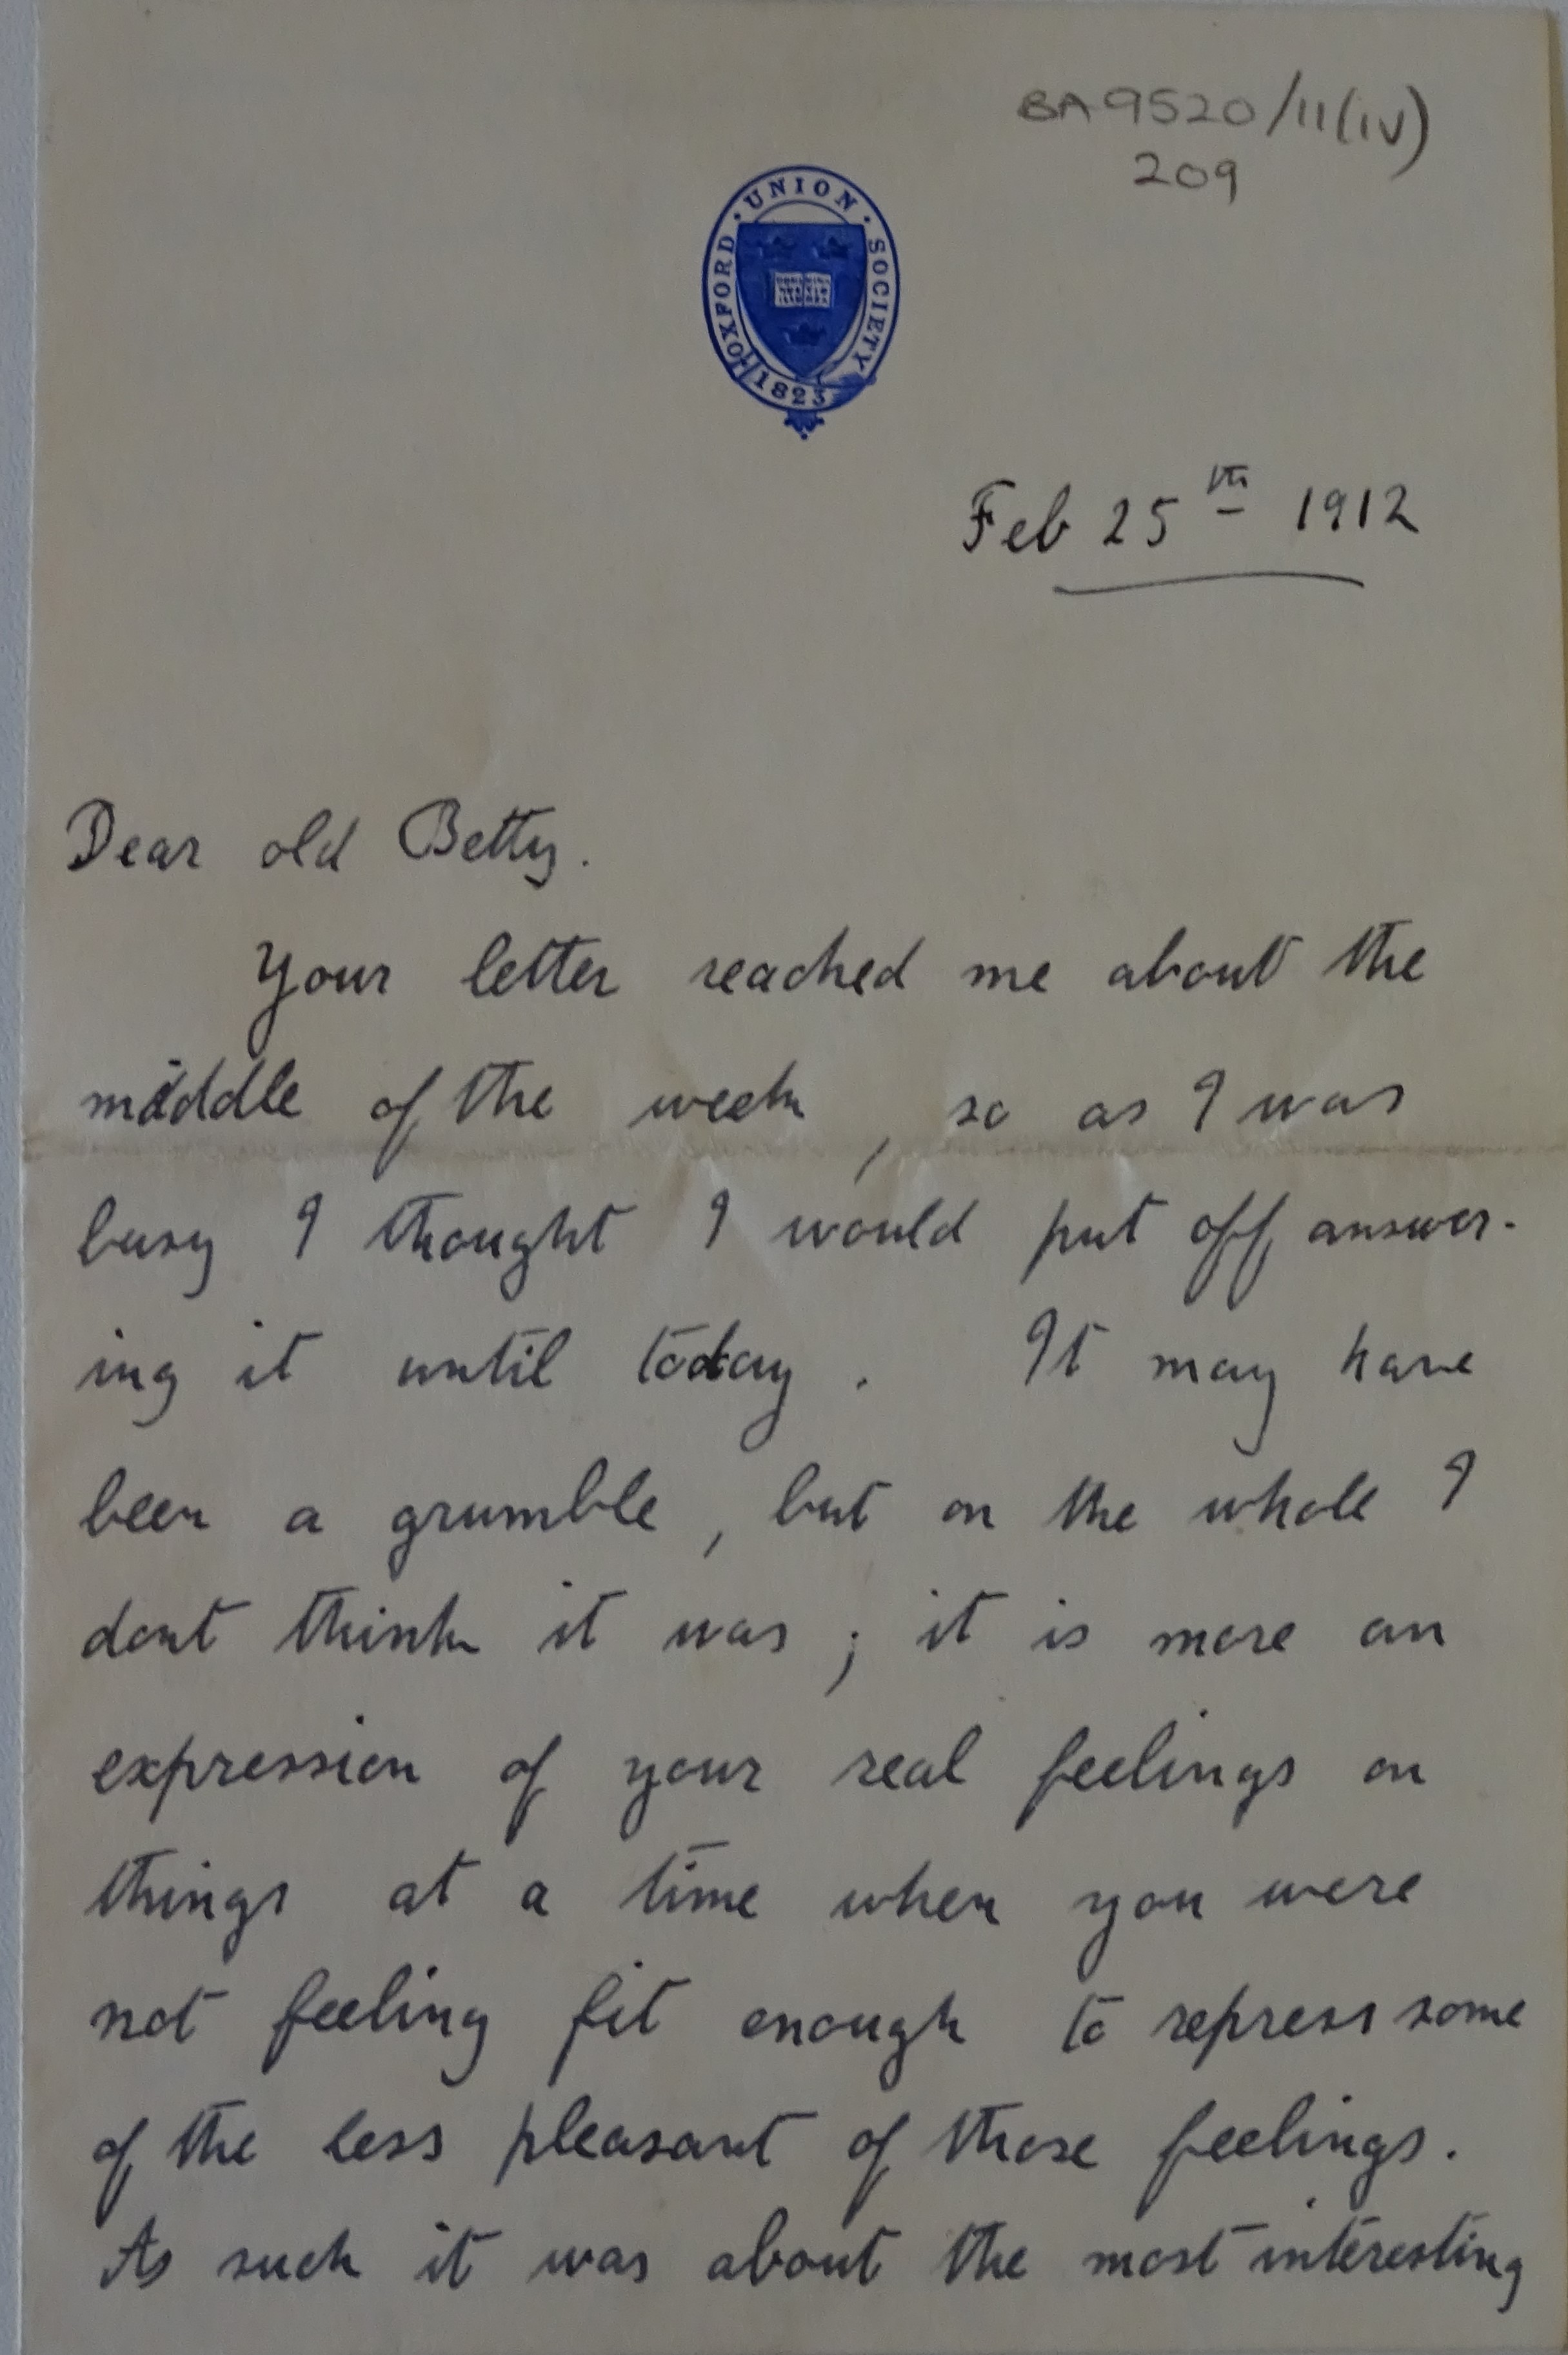 BA9520/11(iv)
209
OXFORD · UNION · SOCIETY
1823
Feb 25th 1912
Dear old Betty.
Your letter reached me about the
middle of the week, so as I was
busy I thought I would put off answer-
ing it until today. It may have
been a grumble, but on the whole I
dont think it was; it is more an
expression of your real feelings on
things at a time when you were
not feeling fit enough to repress some
of the less pleasant of those feelings.
As such it was about the most interesting